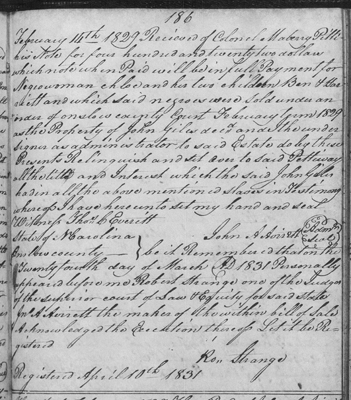 186
February 14th 1829 Received of Colonel Mabery Pette
his Note for four hundred and twenty two dollars
which note when Paid will be in full Pay ment for
Negro woman chloe and his two children Ben &
and which said negroes were Sold under an
order of onslow county Court February Term 1829
as the Property of John Giles decd and I the under
signer as admin is trator to said Estate do by these
Presents Relinquish and set over to said Petteway
all the title and Interest which the said John Giles
had in all the above mentioned slaves in Testimony
whereof I have here un to set my hand and seal
Witness Thos. C Everitt
John A Averett Seal
State of N Carolina
county be it Remembered that on the
Twenty fourth day of March AD 1831 Personally
appeared before me Robert Strange one of the Judges
of the superior court of Law & Equity for said State
Jno A Averett the maker of the within bill of Sale
& Acknowledged the Execution thereof Let it be Re-
gistered
Ro. Strange
Registered April 10th 1831